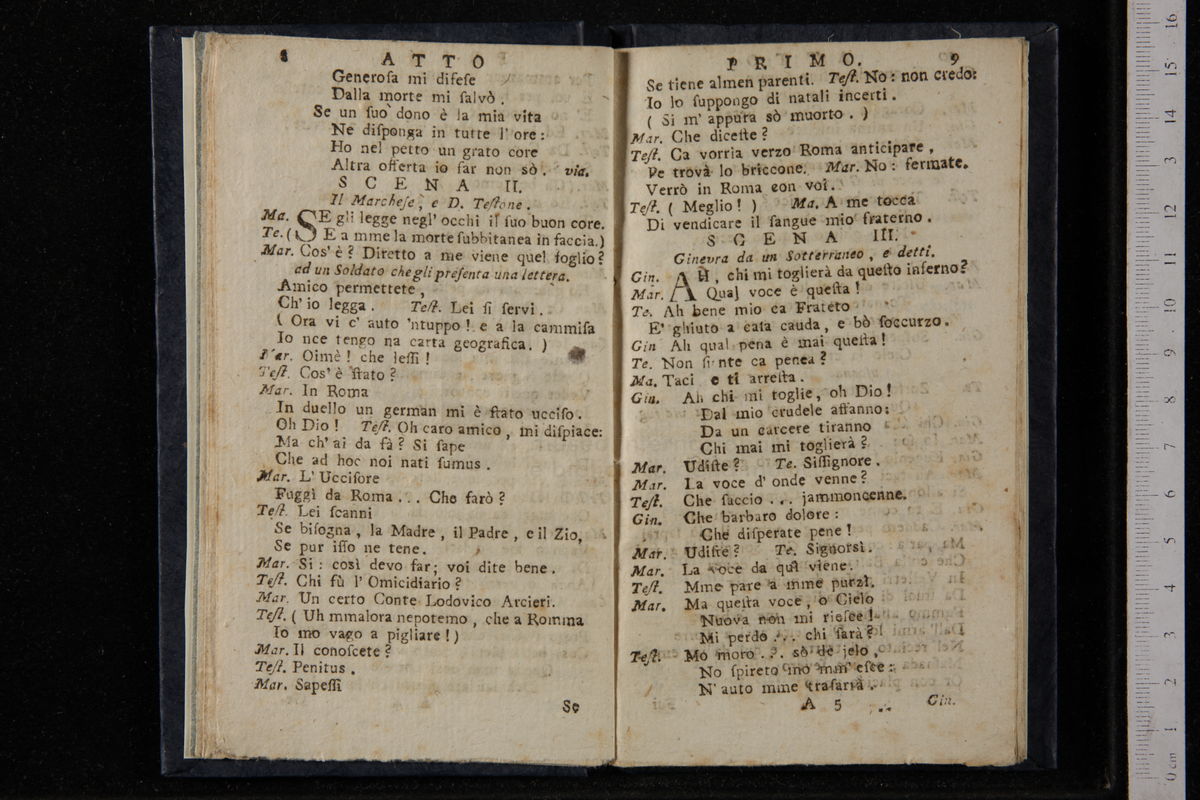 8 ATTO
Generoſa mi difeſe
Dalla morte mi ſalvò.
Se un ſuo dono è la mia vita
Ne diſponga in tutte l' ore:
Ho nel petto un grato core
Altra offerta io far non sò. via.
SCENA II.
Il Marcheſe, e D. Teſtone.
Ma. SE gli legge negl' occhi il ſuo buon core.
Te. (SE a mme la morte ſubbitanea in faccia.)
Mar. Cos' è? Diretto a me viene quel foglio?
ad un Soldato che gli preſenta una lettera.
Amico permettete,
Ch' io legga. Teſt. Lei ſi ſervi.
( Ora vi c' auto 'ntuppo! e a la cammiſa
Io nce tengo na carta geografica. )
Mar. Oimè! che leſſi!
Teſt. Cos' è ſtato?
Mar. In Roma
In duello un german mi è ſtato ucciſo.
Oh Dio! Teſt. Oh caro amico, mi diſpiace:
Ma ch' ai da fà? Si ſape
Che ad hoc noi nati ſumus.
Mar. L' Ucciſore
Fuggì da Roma... Che farò?
Teſt. Lei ſcanni
Se biſogna, la Madre, il Padre, e il Zio,
Se pur iſſo ne tene.
Mar. Sì: così devo far; voi dite bene.
Teſt. Chi fù l' Omicidiario?
Mar. Un certo Conte Lodovico Arcieri.
Teſt. ( Uh mmalora nepotemo, che a Romma
Io mo vago a pigliare!)
Mar. Il conoſcete?
Teſt. Penitus.
Mar. Sapeſſi
Se
PRIMO. 9
Se tiene almen parenti. Teſt. No: non credo:
Io lo ſuppongo di natali incerti.
( Si m' appura sò muorto. )
Mar. Che diceſte?
Teſt. Ca vorria verzo Roma anticipare,
Pe trovà lo briccone. Mar. No: fermate.
Verrò in Roma con voi.
Teſt. ( Meglio! ) Ma. A me tocca
Di vendicare il ſangue mio fraterno.
SCENA III.
Ginevra da un Sotterraneo, e detti.
Gin. AH, chi mi toglierà da queſto inferno?
Mar. Qual voce è queſta!
Te. Ah bene mio ca Frateto
E' ghiuto a caſa cauda, e bò ſoccurzo.
Gin Ah qual pena è mai queſta!
Te. Non ſiente ca penea?
Ma. Taci e ti arreſta.
Gin. Ah chi mi toglie, oh Dio!
Dal mio crudele affanno:
Da un carcere tiranno
Chi mai mi toglierà?
Mar. Udiſte? Te. Siſſignore.
Mar. La voce d' onde venne?
Teſt. Che faccio... jammoncenne.
Gin. Che barbaro dolore:
Che diſperate pene!
Mar. Udiſte? Te. Signorsì.
Mar. La voce da quì viene.
Teſt. Mme pare a mme purzì.
Mar. Ma queſta voce, o Cielo
Nuova non mi rieſce!
Mi perdo... chi ſarà?
Teſt. Mo moro... sò de jelo,
No ſpireto mo mm' eſce:
N' auto mme traſarrà.
A 5 Gin.